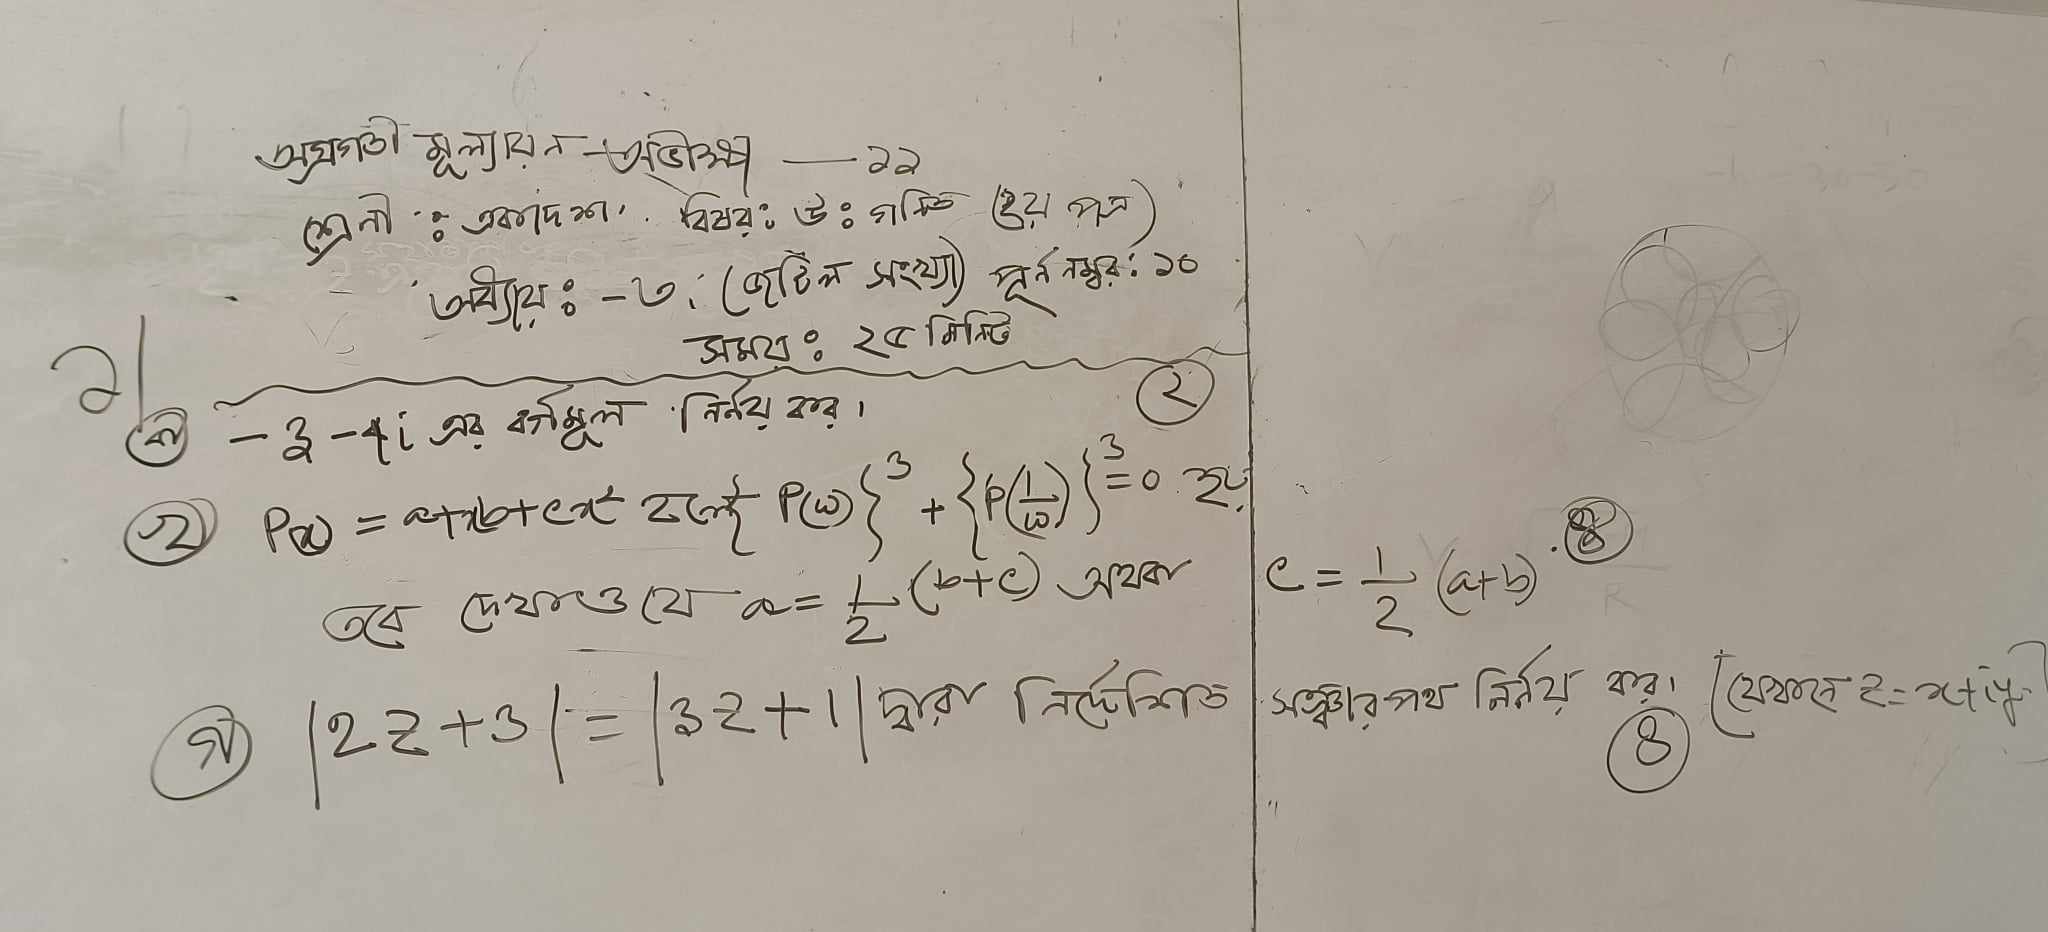 অগ্রগতী মূল্যায়ন অভীক্ষা — ১১
শ্রেনী : একাদশ বিষয়ঃ উঃ গনিত (২য় পত্র)
অধ্যায়ঃ - ৩ (জটিল সংখ্যা) পূর্ন নম্বর: ১০
সময়ঃ ২৫ মিনিট
১।
ক -3 -4i এর বর্গমূল নির্নয় কর। ২
খ P(x) = a+xb+cx² হলে {P(ω)}³ + {P(1/ω)}³ = 0 হয়,
তবে দেখাও যে a = 1/2 (b+c) অথবা c = 1/2 (a+b). 8
গ |2z+3| = |3z+1| দ্বারা নির্দেশিত সঞ্চারপথ নির্নয় কর। [যেখানে z = x+iy]
8